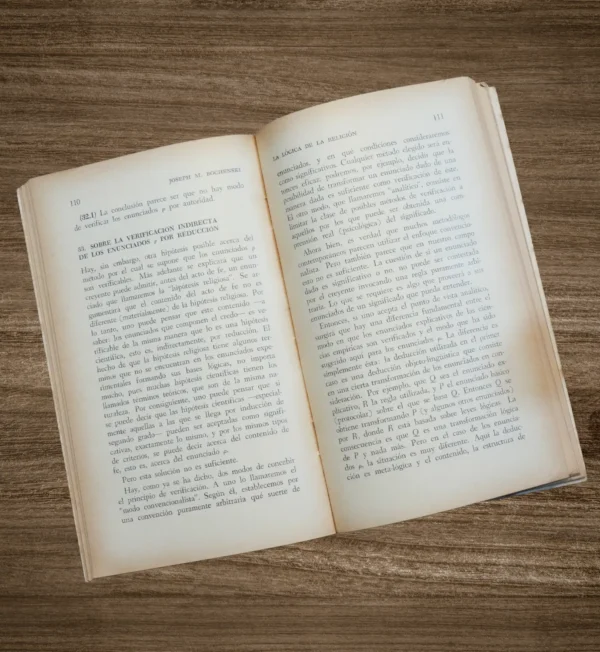 110
JOSEPH M. BOCHENSKI
(32.1) La conclusión parece ser que no hay modo
de verificar los enunciados ρ por autoridad.
33. SOBRE LA VERIFICACION INDIRECTA
DE LOS ENUNCIADOS ρ POR REDUCCION
Hay, sin embargo, otra hipótesis posible acerca del
método por el cual se supone que los enunciados ρ
son verificables. Más adelante se explicará que un
creyente puede admitir, antes del acto de fe, un enun-
ciado que llamaremos la "hipótesis religiosa". Se ar-
gumentará que el contenido del acto de fe no es
diferente (materialmente) de la hipótesis religiosa. Por
lo tanto, uno puede pensar que este contenido —a
saber: los enunciados que componen el credo— es ve-
rificable de la misma manera que lo es una hipótesis
científica, esto es, indirectamente, por reducción. El
hecho de que la hipótesis religiosa tiene algunos tér-
minos que no se encuentran en los enunciados expe-
rimentales que forman sus bases lógicas, no importa
mucho, pues muchas hipótesis científicas tienen los
llamados términos teóricos, que son de la misma na-
turaleza. Por consiguiente, uno puede pensar que si
se puede decir que las hipótesis científicas —especial-
mente aquellas a las que se llega por inducción de
segundo grado— pueden ser aceptadas como signifi-
cativas, exactamente lo mismo, y por los mismos tipos
de criterios, se puede decir acerca del contenido de
fe, esto es, acerca del enunciado ρ.
Pero esta solución no es suficiente.
Hay, como ya se ha dicho, dos modos de concebir
el principio de verificación. A uno lo llamaremos el
"modo convencionalista". Según él, establecemos por
una convención puramente arbitraria qué suerte de
LA LÓGICA DE LA RELIGIÓN
111
enunciados, y en qué condiciones consideraremos
como significativos. Cualquier método elegido será en-
tonces eficaz; podremos, por ejemplo, decidir que la
posibilidad de transformar un enunciado dado de una
manera dada es suficiente como verificación de éste.
El otro modo, que llamaremos "analítico", consiste en
limitar la clase de posibles métodos de verificación a
aquellos por los que puede ser obtenida una com-
prensión real (psicológica) del significado.
Ahora bien, es verdad que muchos metodólogos
contemporáneos parecen utilizar el enfoque convencio-
nalista. Pero también parece que en nuestro campo
esto no es suficiente. La cuestión de si un enunciado
dado es significativo o no, no puede ser contestada
por el creyente invocando una regla puramente arbi-
traria. Lo que se requiere es algo que proveerá a sus
enunciados de un significado que pueda entender.
Entonces, si uno acepta el punto de vista analítico,
surgirá que hay una diferencia fundamental entre el
modo en que los enunciados explicativos de las cien-
cias empíricas son verificados y el modo que ha sido
sugerido aquí para los enunciados ρ. La diferencia es
simplemente ésta: la deducción realizada en el primer
caso es una deducción objeto-lingüística que consiste
en una cierta transformación de los enunciados en con-
sideración. Por ejemplo, que Q sea el enunciado ex-
plicativo, R la regla utilizada, y P el enunciado básico
(protocolar) sobre el que se basa Q. Entonces Q se
obtiene transformando P (y algunos otros enunciados)
por R, donde R está basada sobre leyes lógicas. La
consecuencia es que Q es una transformación lógica
de P y nada más. Pero en el caso de los enuncia-
dos ρ, la situación es muy diferente. Aquí la deduc-
ción es meta-lógica y el contenido, la estructura de